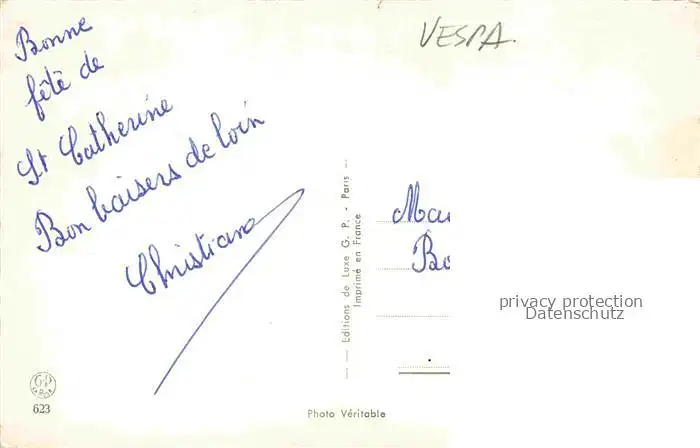 VESPA.
Bonne
fête de
St Catherine
Bon baisers de loin
Christiane
— Editions de Luxe G. P. - Paris —
Imprimé en France
privacy protection
Datenschutz
G.P
623
Photo Véritable